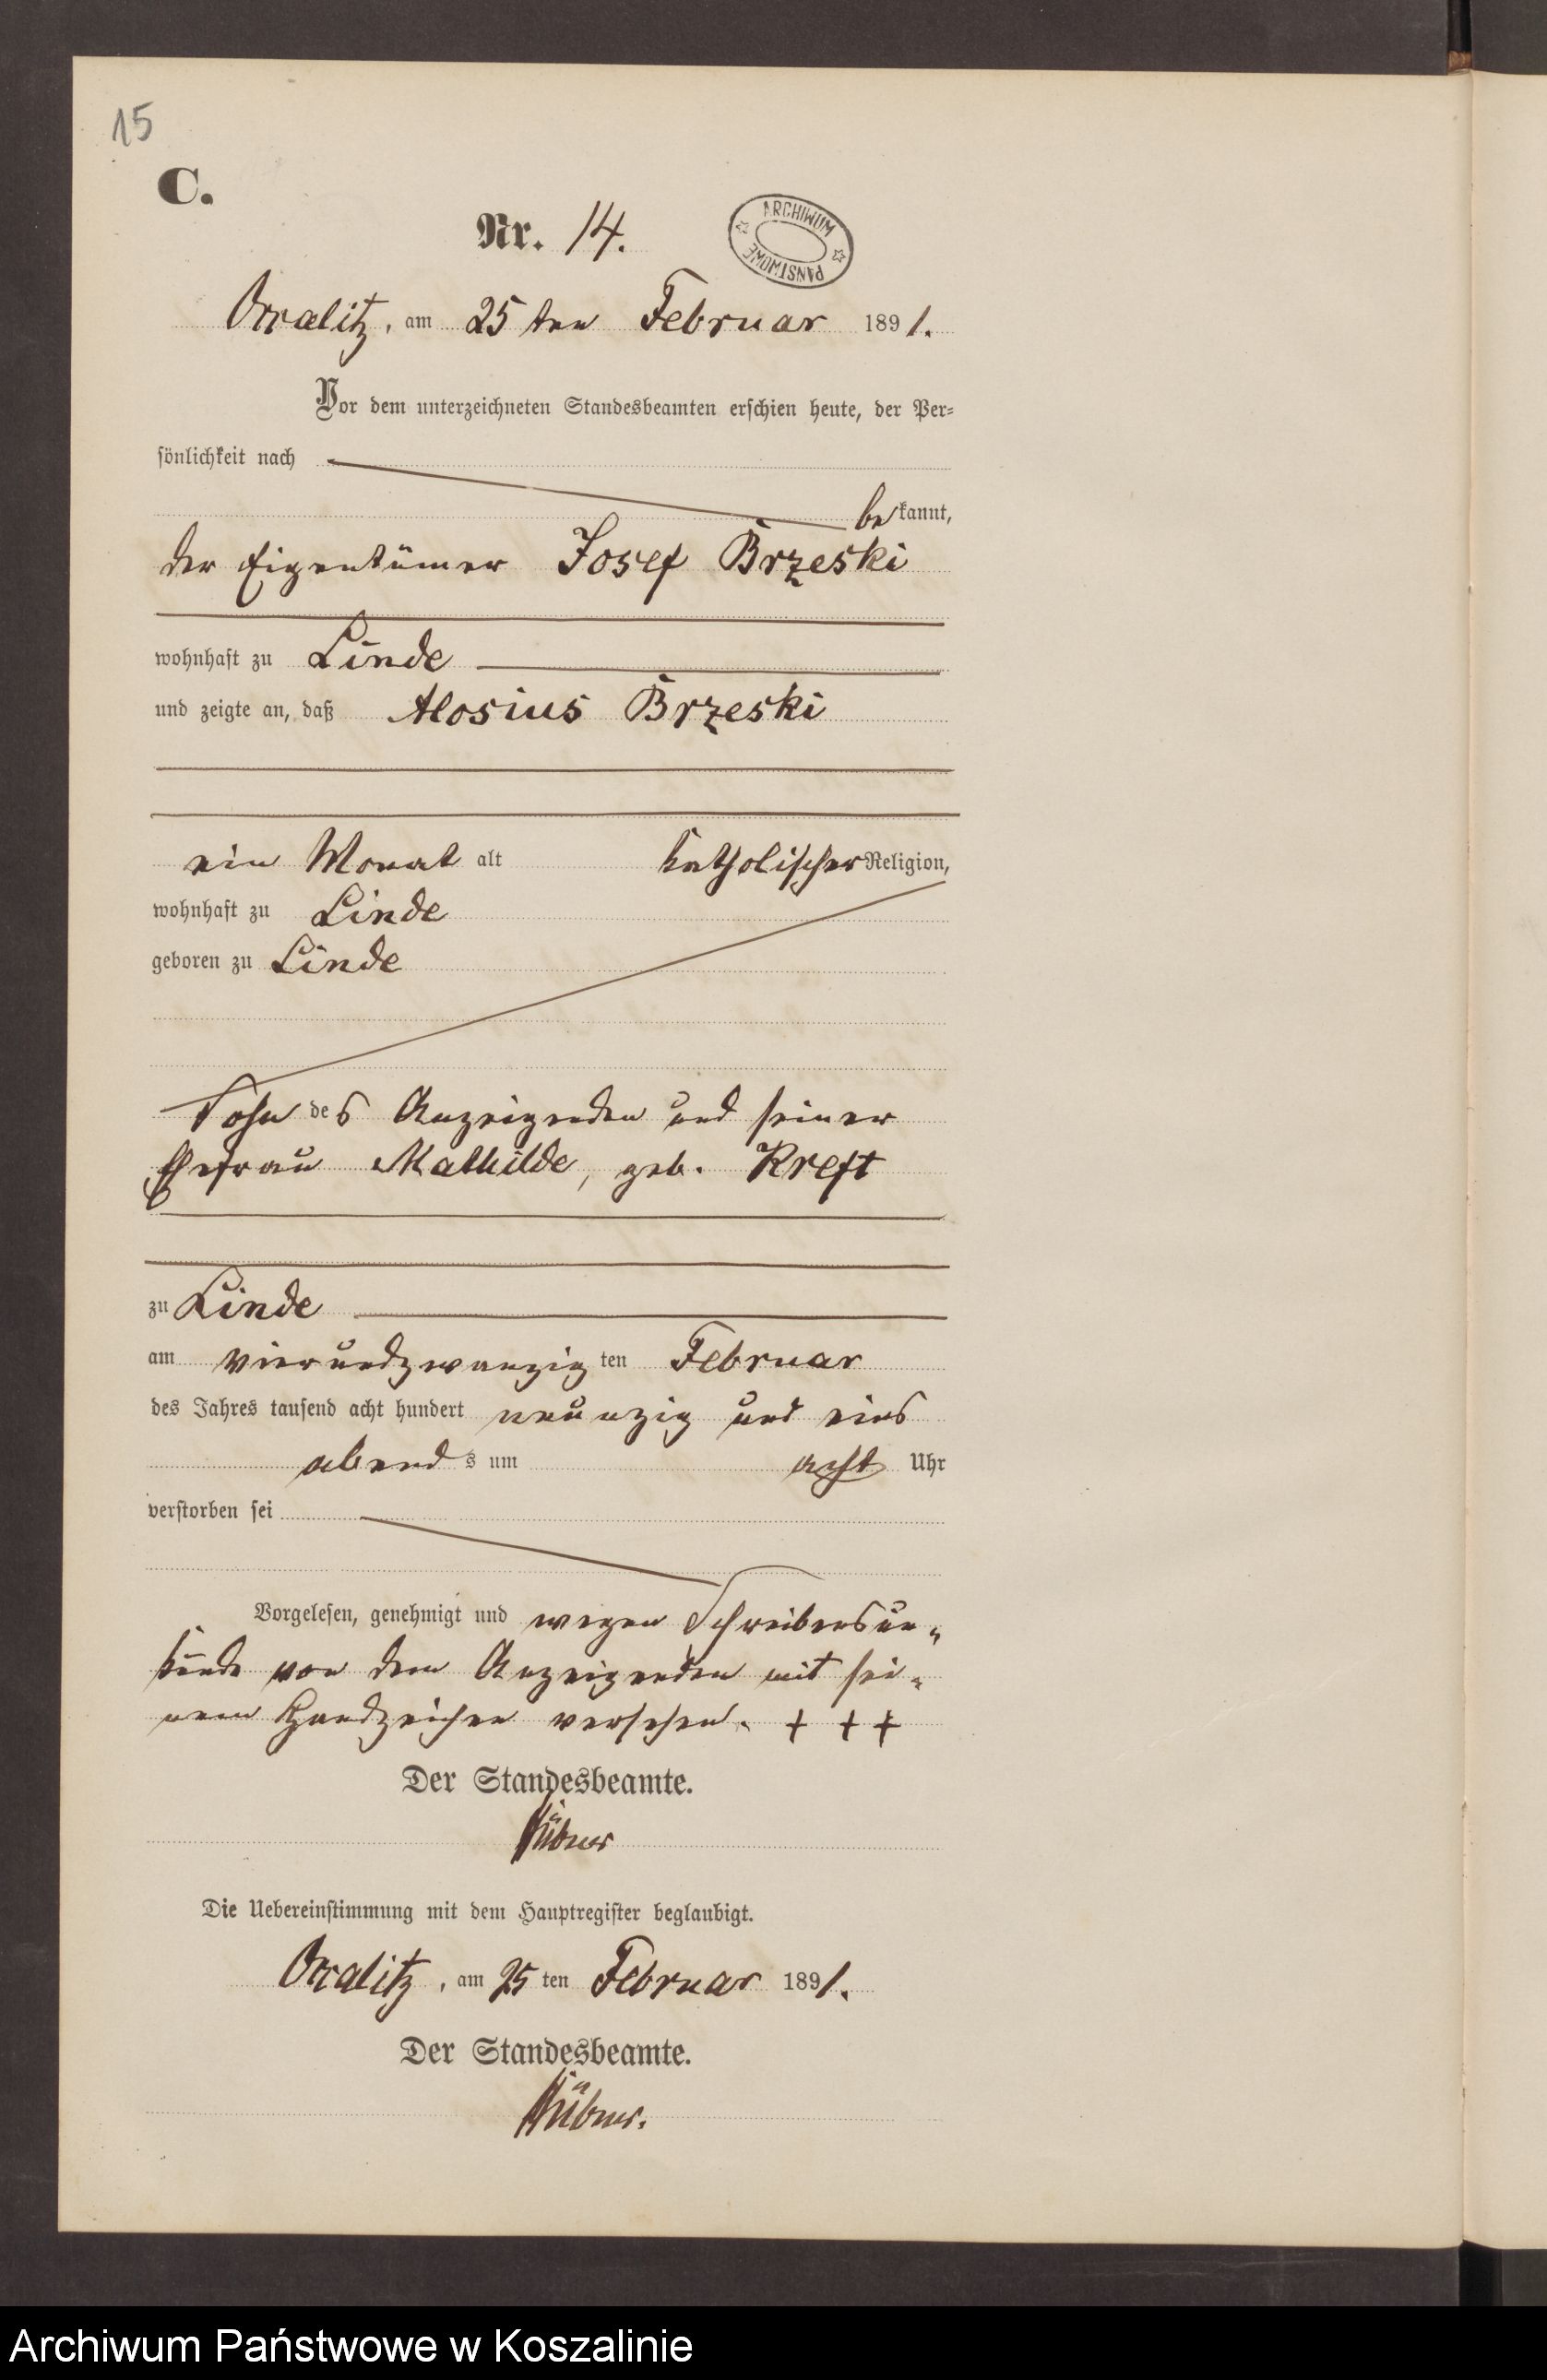 15
C.
Nr. 14.
ARCHIWUM PAŃSTWOWE
Orralitz, am 25 ten Februar 1891.
Vor dem unterzeichneten Standesbeamten erschien heute, der Per-
sönlichkeit nach
bekannt,
der Eigentümer Josef Brzeski
wohnhaft zu Linde
und zeigte an, daß Alosius Brzeski
ein Monat alt katholischer Religion,
wohnhaft zu Linde
geboren zu Linde
Sohn des Anzeigenden und seiner
Ehefrau Mathilde, geb. Kreft
zu Linde
am vierundzwanzig ten Februar
des Jahres tausend acht hundert neunzig und eins
abends um acht Uhr
verstorben sei
Vorgelesen, genehmigt und wegen Schreibensun-
kunde von dem Anzeigenden mit sei-
nem Handzeichen versehen. + + +
Der Standesbeamte.
Hübner
Die Uebereinstimmung mit dem Hauptregister beglaubigt.
Orralitz, am 25 ten Februar 1891.
Der Standesbeamte.
Hübner.
Archiwum Państwowe w Koszalinie